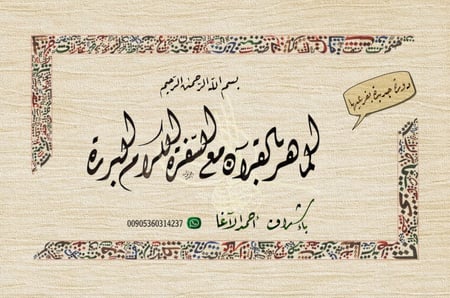 بسم الله الرحمن الرحيم
دورة جديدة بفرعيها
الماهر بالقرآن مع السفرة الكرام البررة
بإشراف أحمد الآغا
00905360314237